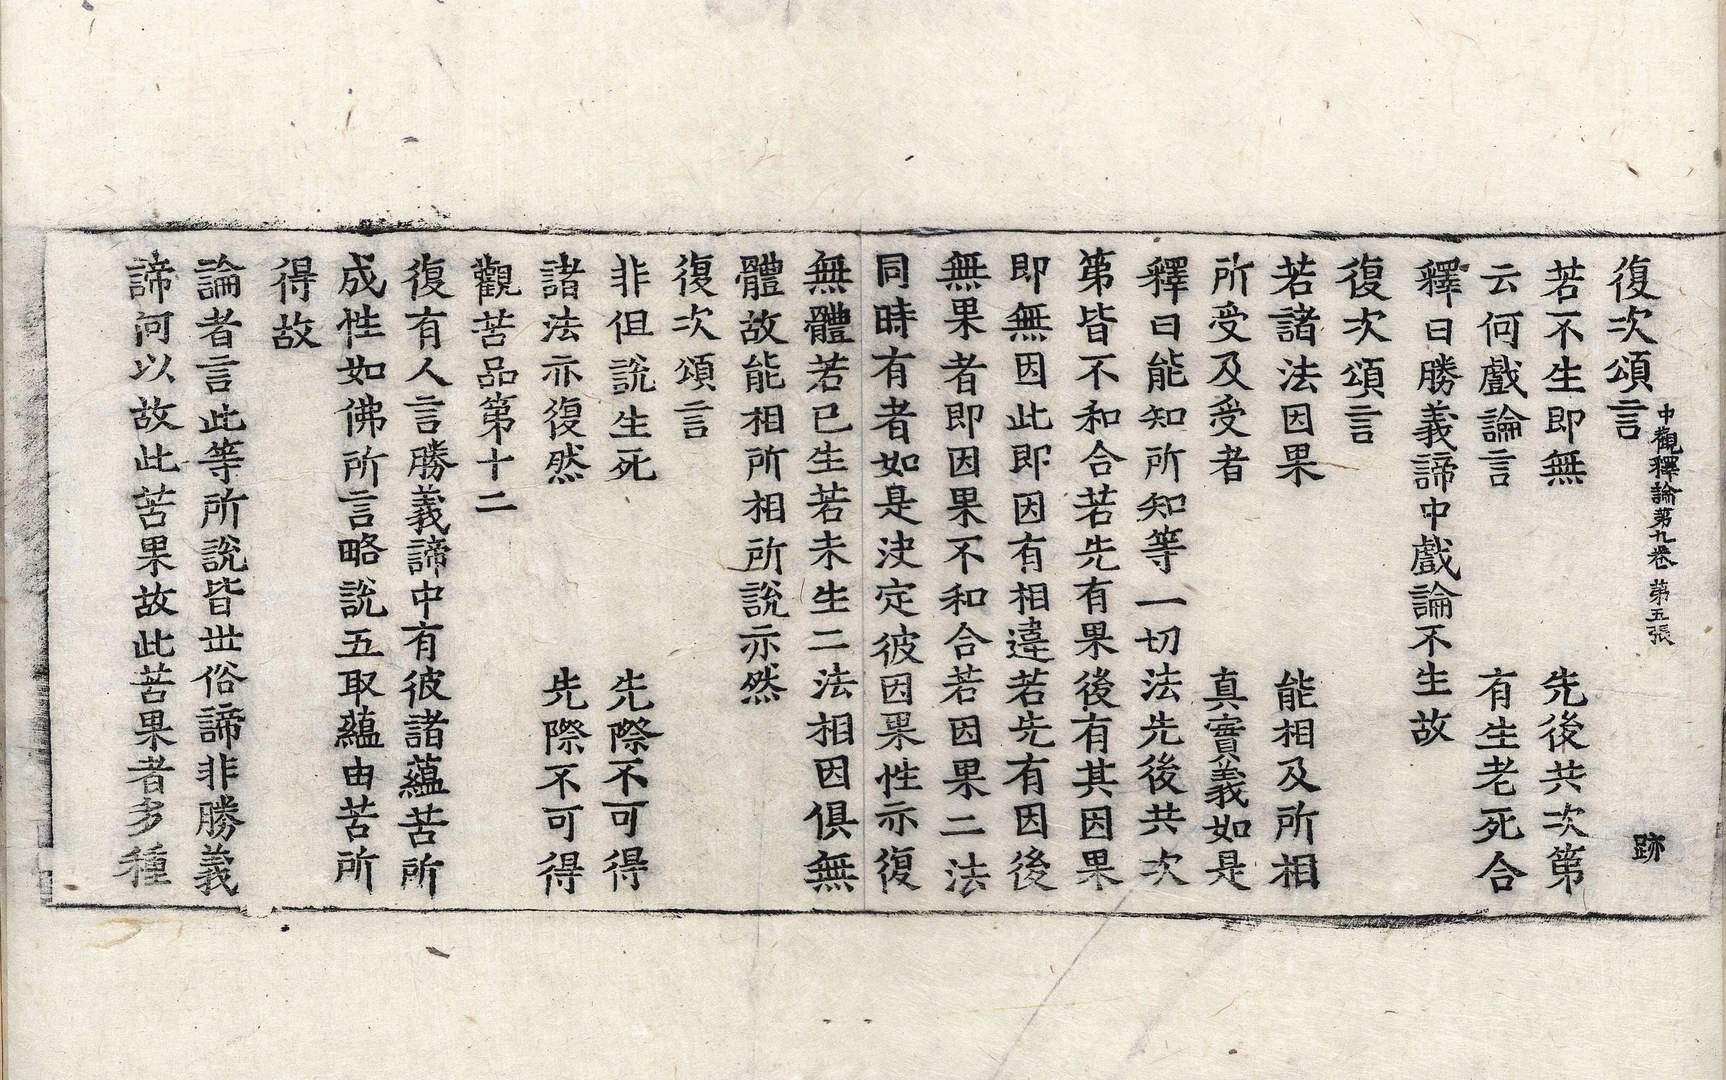 復次頌言
中觀釋論第九卷 第五張 跡
若不生即無 先後共次第
云何戲論言 有生老死合
釋曰勝義諦中戲論不生故
復次頌言
若諸法因果 能相及所相
所受及受者 真實義如是
釋曰能知所知等一切法先後共次
第皆不和合若先有果後有其因果
即無因此即因有相違若先有因後
無果者即因果不和合若因果二法
同時有者如是決定彼因果性亦復
無體若已生若未生二法相因俱無
體故能相所相所說亦然
復次頌言
非但說生死 先際不可得
諸法亦復然 先際不可得
觀苦品第十二
復有人言勝義諦中有彼諸蘊苦所
成性如佛所言略說五取蘊由苦所
得故
論者言此等所說皆世俗諦非勝義
諦何以故此苦果故此苦果者多種